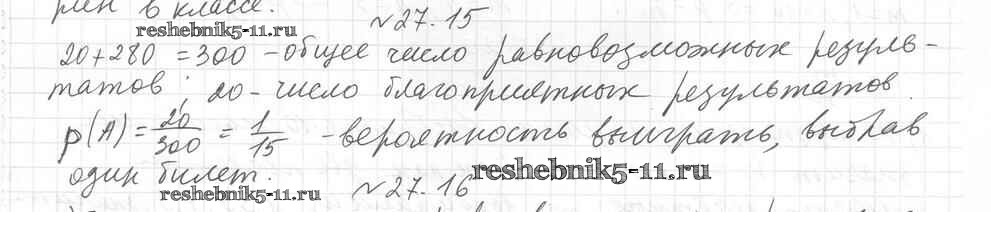 рен в классе.
№27.15
reshebnik5-11.ru
20+280 = 300 - общее число равновозможных резуль-
татов; 20 - число благоприятных результатов.
p(A) = 20/300 = 1/15 - вероятность выиграть, выбрав
один билет.
reshebnik5-11.ru
reshebnik5-11.ru
№27.16